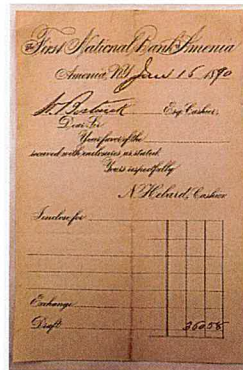 The First National Bank of Amenia
Amenia, N.Y. 15 1890
Esq. Cashier,
Dear Sir
Your favor of the
received with enclosures as stated.
Yours respectfully
N. Hebard, Cashier
I enclose for
Exchange
Draft 360.58